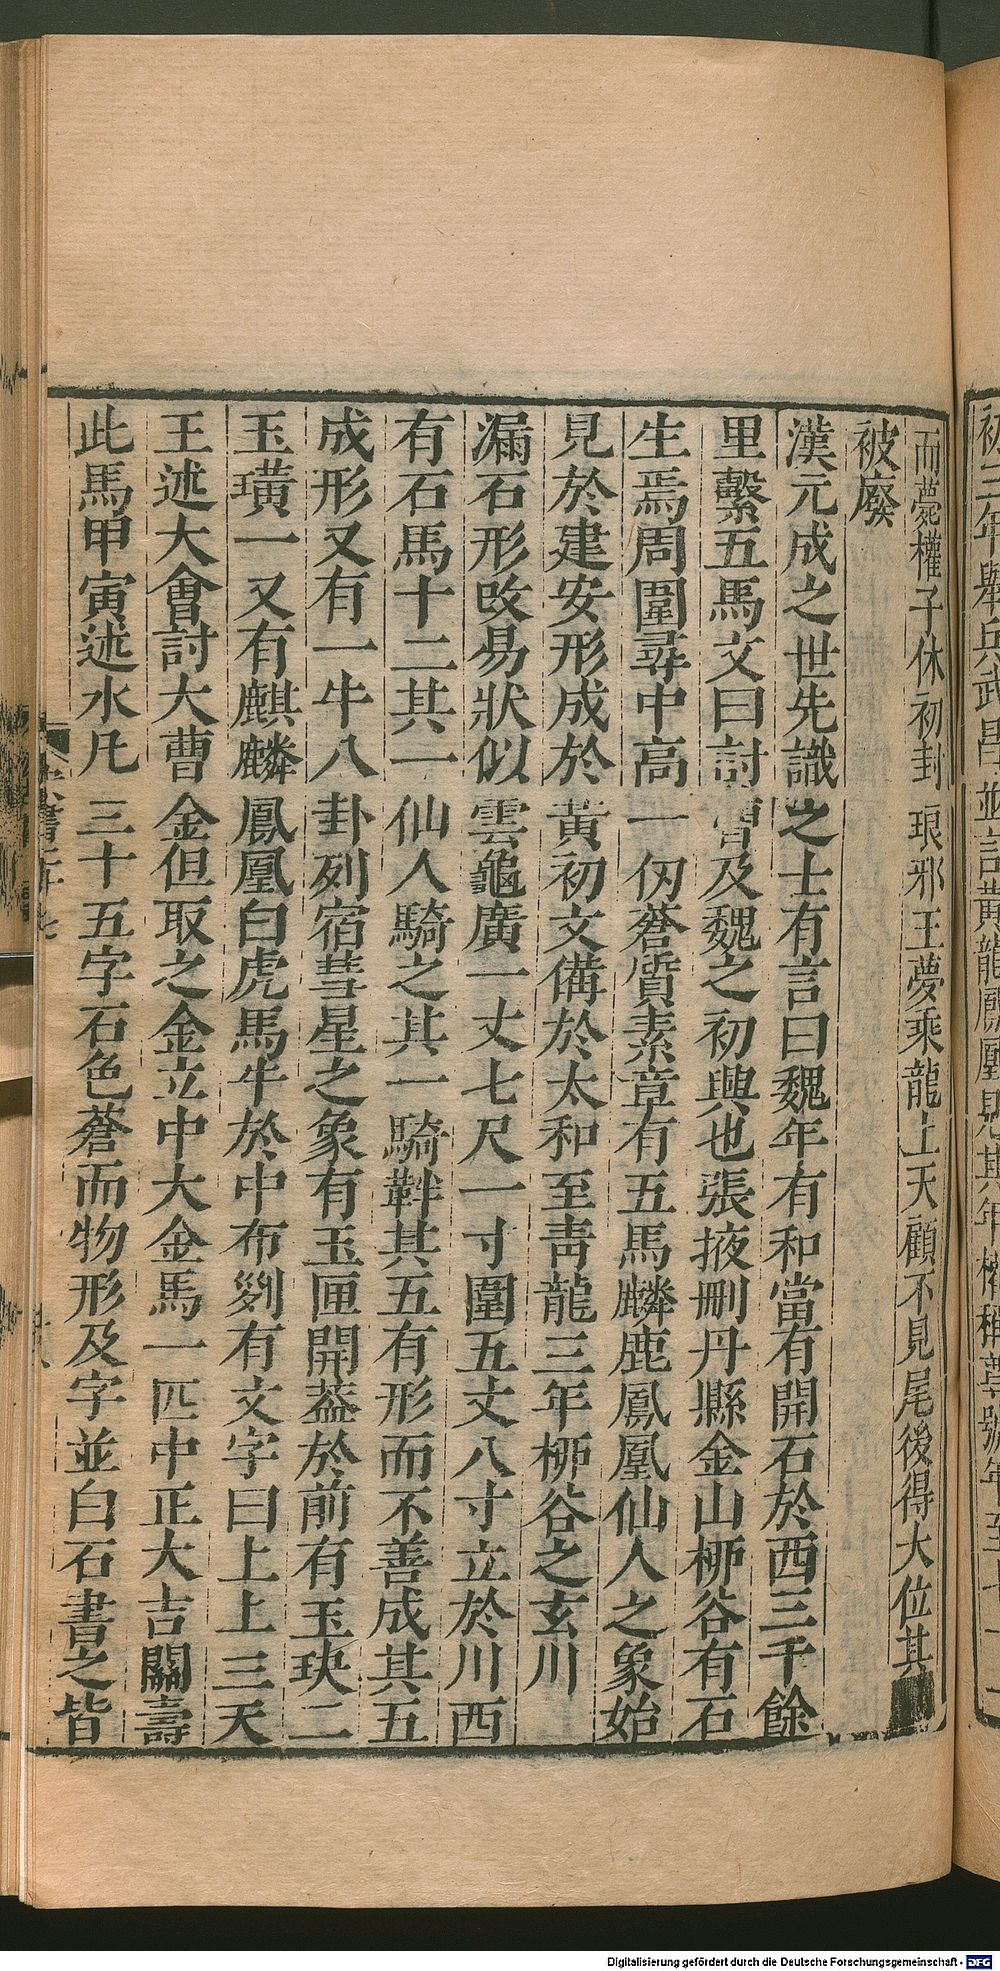 而薨權子休初封琅邪王夢乘龍上天顧不見尾後得大位其
被廢
漢元成之世先識之士有言曰魏年有和當有開石於西三千餘
里繫五馬文曰討曹及魏之初興也張掖刪丹縣金山柳谷有石
生焉周圍尋中高一仞蒼質素章有五馬麟鹿鳳凰仙人之象始
見於建安形成於黃初文備於太和至青龍三年柳谷之玄川
漏石形改易狀似雲龜廣一丈七尺一寸圍五丈八寸立於川西
有石馬十二其一仙人騎之其一騎鞿其五有形而不善成其五
成形又有一牛八卦列宿彗星之象有玉匣開蓋於前有玉玦二
玉璜一又有麒麟鳳凰白虎馬牛於中布列有文字曰上上三天
王述大會討大曹金但取之金立中大金馬一匹中正大吉關壽
此馬甲寅述水凡三十五字石色蒼而物形及字並白石書之皆
Digitalisierung gefördert durch die Deutsche Forschungsgemeinschaft - DFG